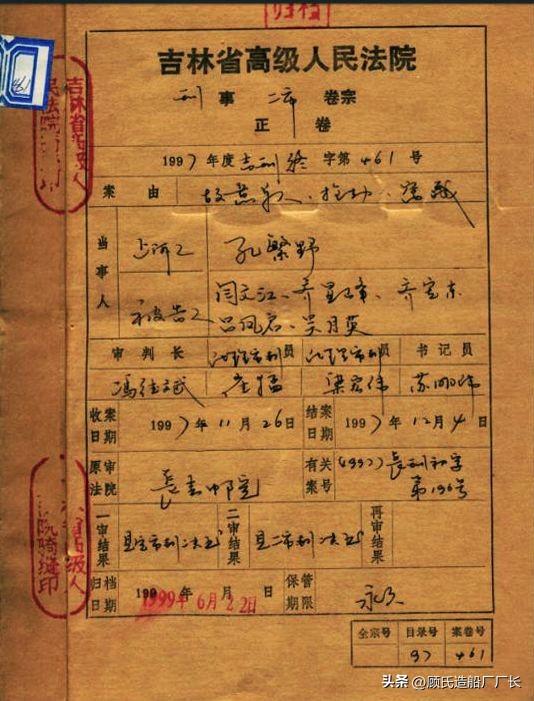 归档
吉林省高级人民法院
刑事二审卷宗
正卷
1997年度吉刑终字第461号
案由 故意杀人、抢劫、窝藏
当事人 上诉人 孔繁野
被告人 闫文江、齐
吕凤君、吴月英
审判长 员 员 书记员
崔猛 梁宏伟 苏
收案日期 1997年11月26日 结案日期 1997年12月4日
原审法院 长春中院 有关案号 (1997)长刑初字第196号
一审结果 见 二审结果 见二审刑 再审结果
归档日期 199 年 月 日 保管期限 永久
1999年6月22日
全宗号 目录号 案卷号
97 461
461
吉林省高级人
民法院
省高级人
法院骑缝印
头条 @顾氏造船厂厂长